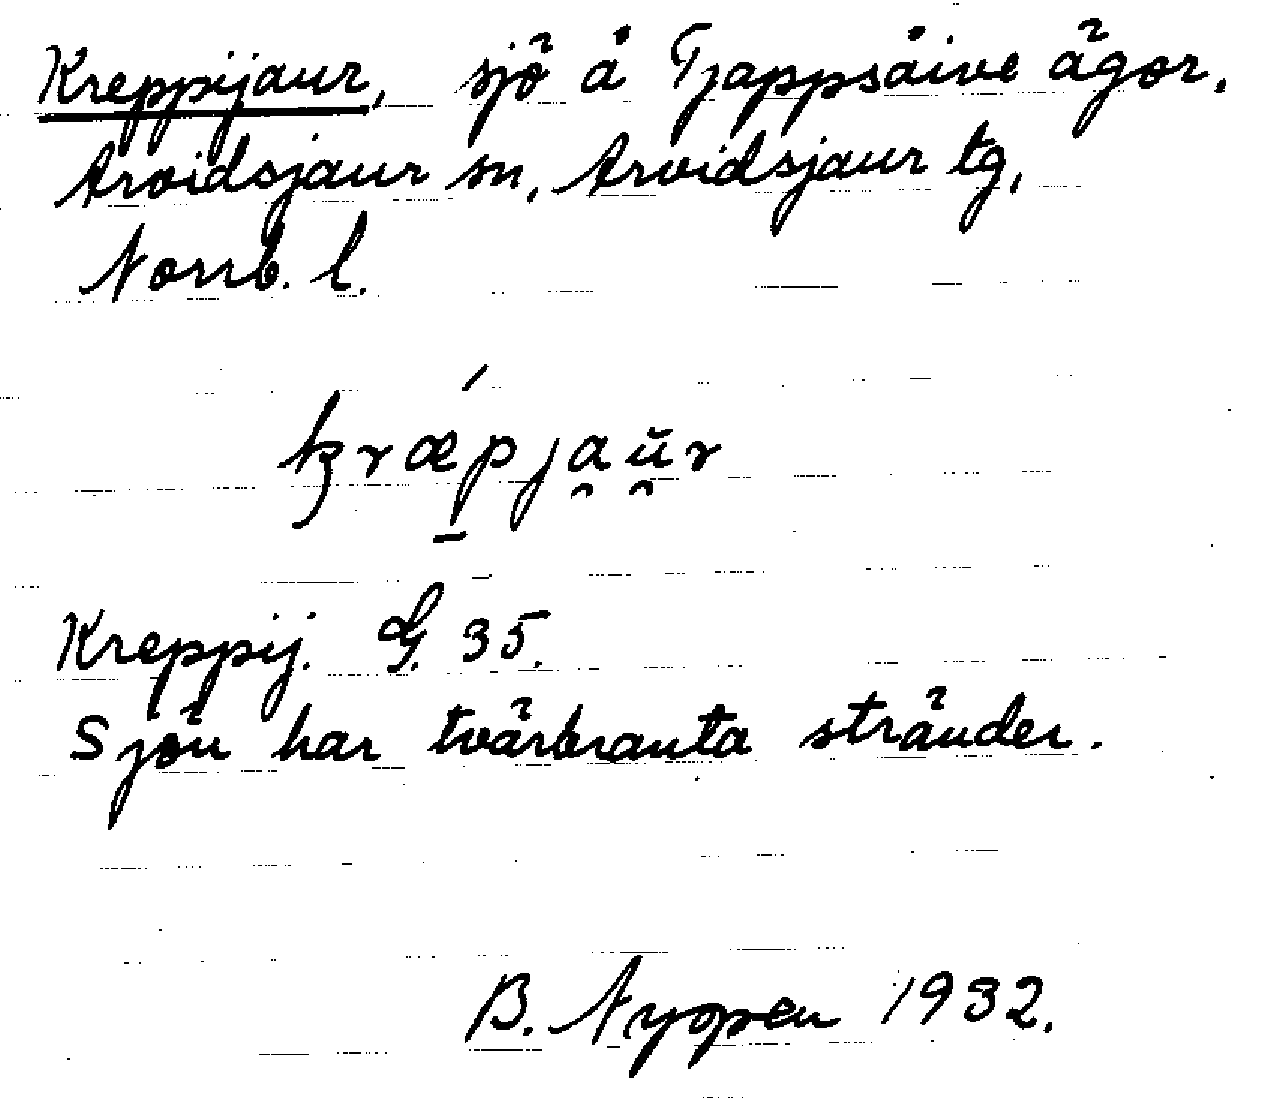 Kreppijaur, sjö å Tjappsåive ägor,
Arvidsjaur sn, Arvidsjaur tg,
Norrb. l.
krǽ̱pja̯ŭ̯r
Kreppij. G. 35.
Sjön har tvärbranta stränder.
B. Nyopen 1932.